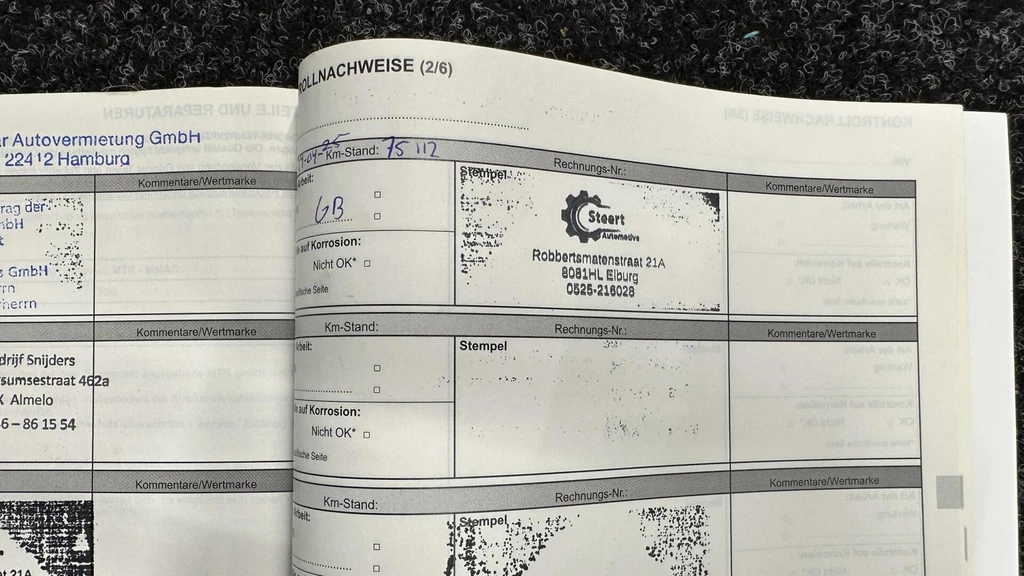 ar Autovermietung GmbH
22412 Hamburg
Kommentare/Wertmarke
rag der
bH
t
s GmbH
rn
herrn
Kommentare/Wertmarke
drijf Snijders
sumsestraat 462a
K Almelo
6 – 86 15 54
Kommentare/Wertmarke
t 21A
TEILE UND REPARATUREN
OLLNACHWEISE (2/6)
KONTROLLNACHWEISE
-04-25 Km-Stand: 75 112
Rechnungs-Nr.:
Kommentare/Wertmarke
Arbeit:
GB
auf Korrosion:
Nicht OK*
ifische Seite
Stempel
Steert
Automotive
Robbertsmatenstraat 21A
8081HL Elburg
0525-216028
Km-Stand:
Rechnungs-Nr.:
Kommentare/Wertmarke
Arbeit:
Stempel
auf Korrosion:
Nicht OK*
ifische Seite
Km-Stand:
Rechnungs-Nr.:
Kommentare/Wertmarke
Arbeit:
Stempel